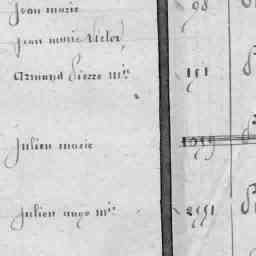 Jean marie 98
Jean marie Victor
Armand Pierre m.ie 151
Julien marie
Julien ange m.ie 2551